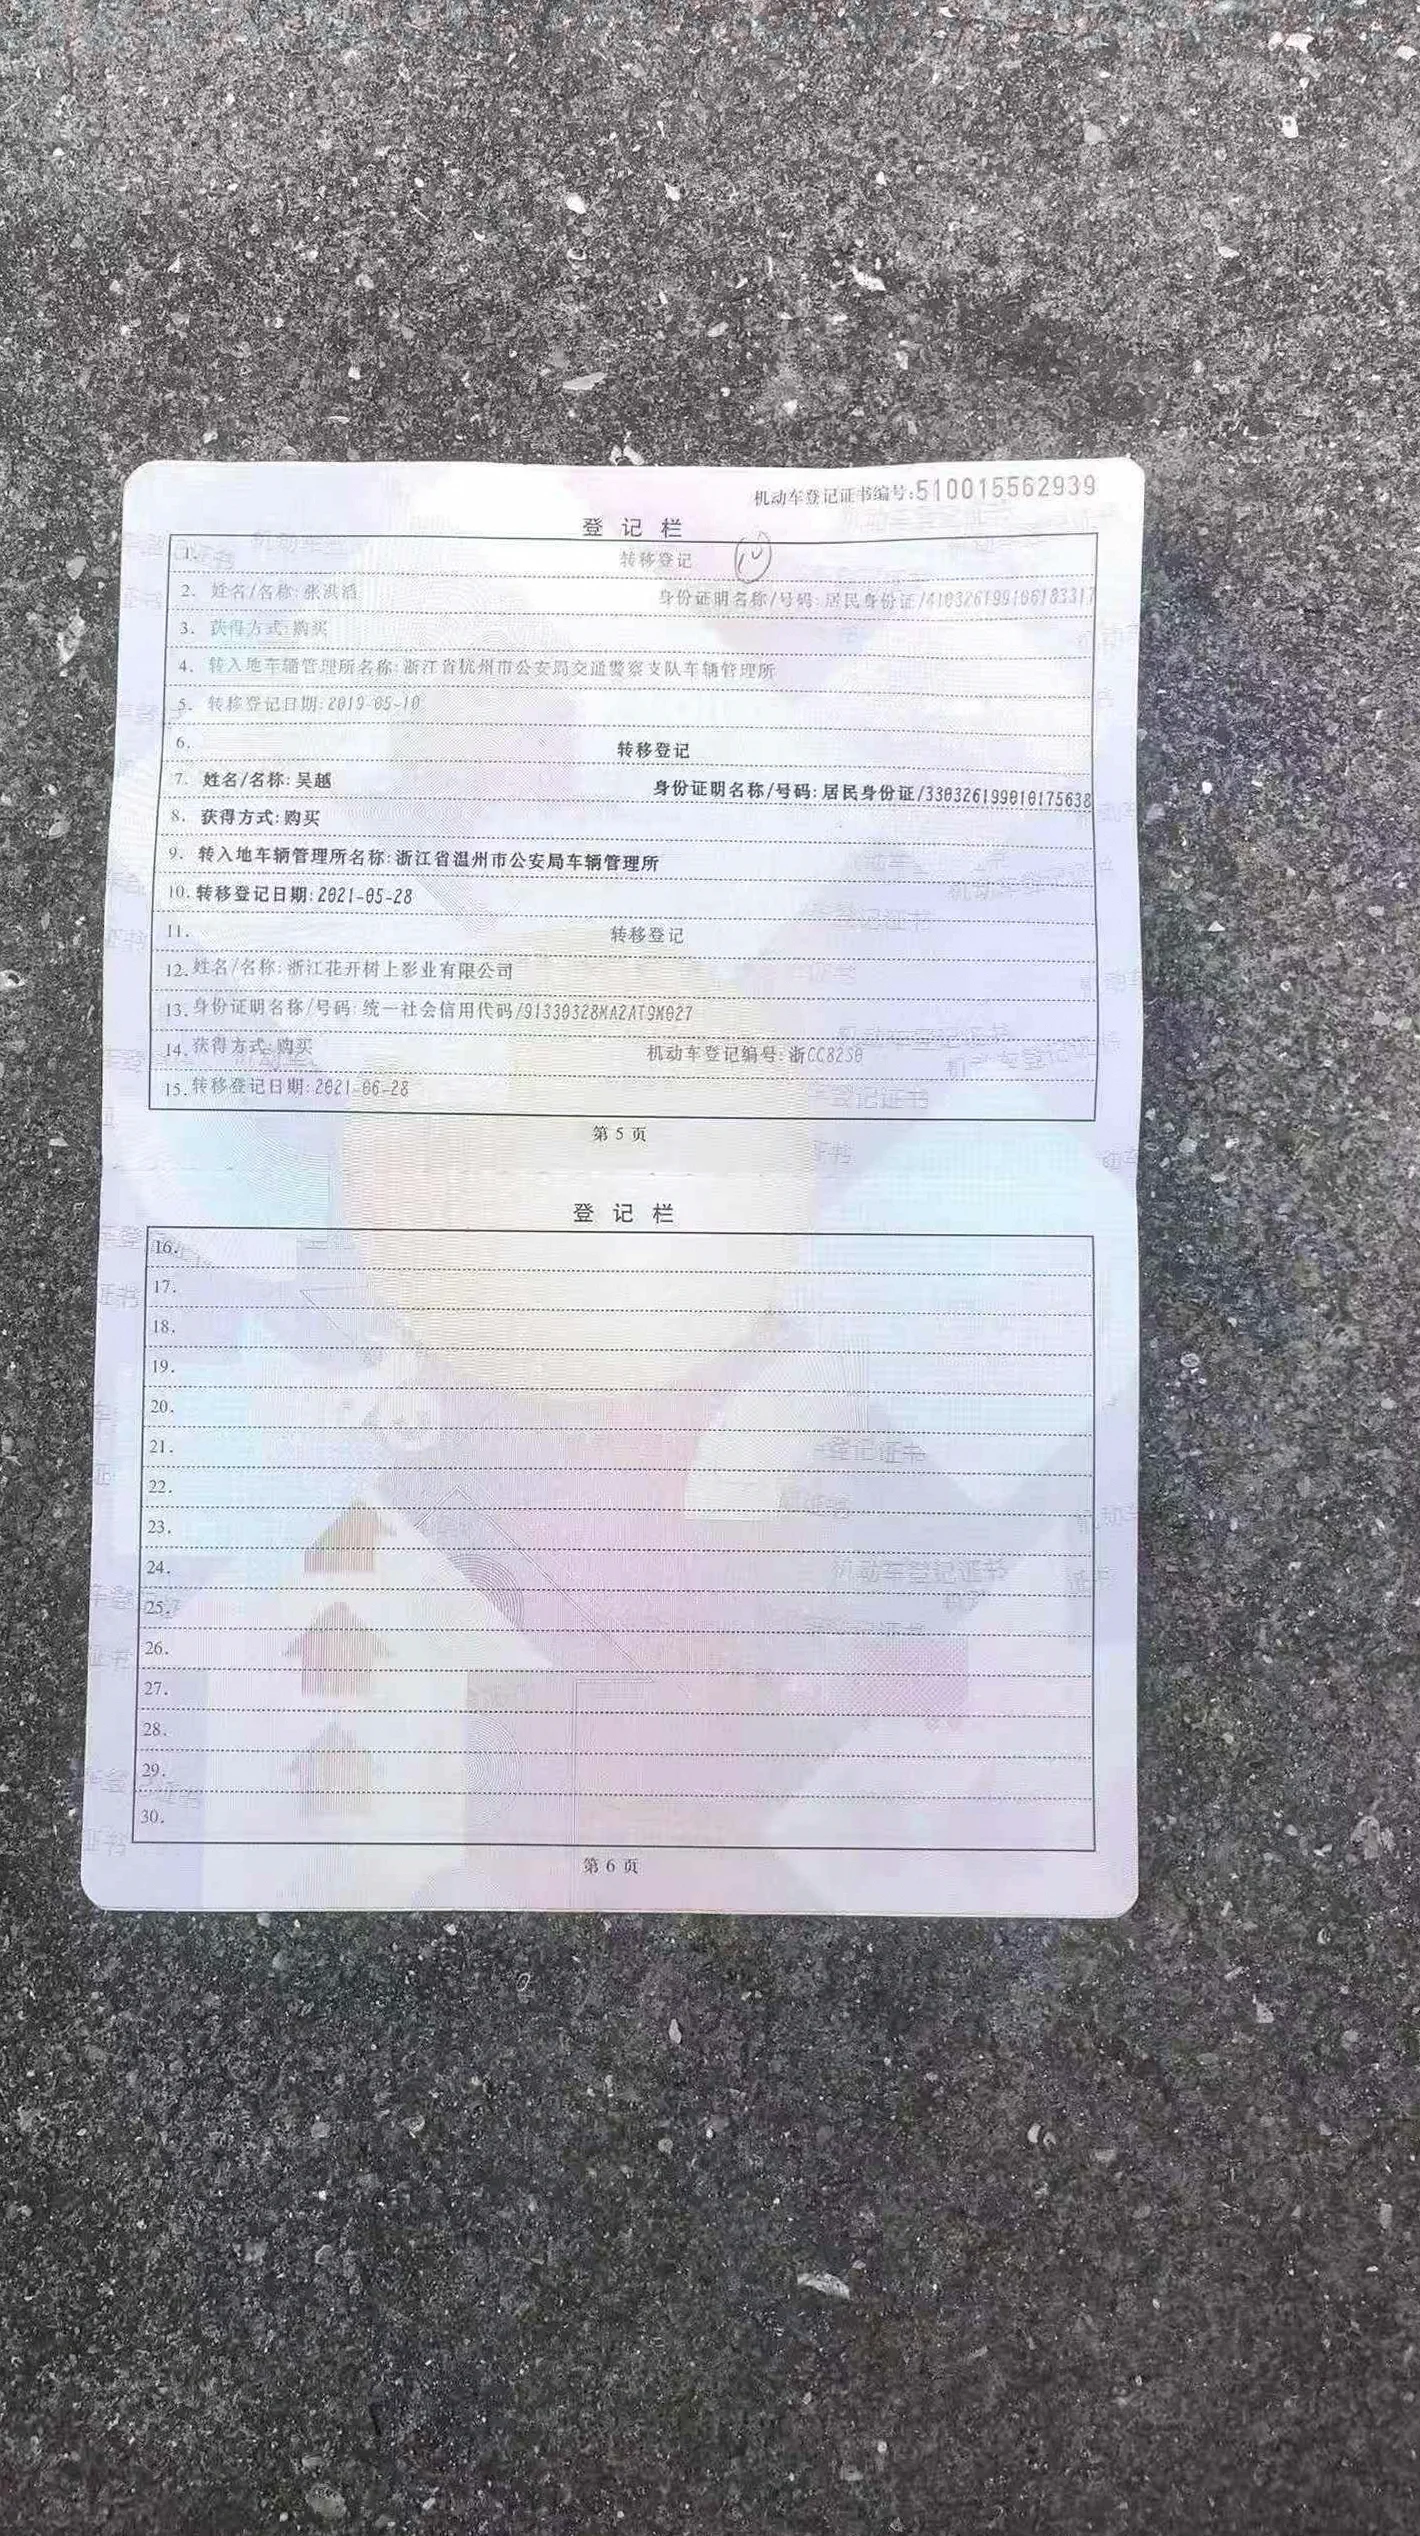 机动车登记证书编号:510015562939
登 记 栏
1. 转移登记
2. 姓名/名称:张淇滔 身份证明名称/号码:居民身份证/410326199106183317
3. 获得方式:购买
4. 转入地车辆管理所名称:浙江省杭州市公安局交通警察支队车辆管理所
5. 转移登记日期:2019-05-10
6. 转移登记
7. 姓名/名称:吴越 身份证明名称/号码:居民身份证/330326199010175638
8. 获得方式:购买
9. 转入地车辆管理所名称:浙江省温州市公安局车辆管理所
10. 转移登记日期:2021-05-28
11. 转移登记
12. 姓名/名称:浙江花开树上影业有限公司
13. 身份证明名称/号码:统一社会信用代码/91330328MA2AT9M027
14. 获得方式:购买 机动车登记编号:浙CC82S0
15. 转移登记日期:2021-06-28
第 5 页
登 记 栏
16.
17.
18.
19.
20.
21.
22.
23.
24.
25.
26.
27.
28.
29.
30.
第 6 页